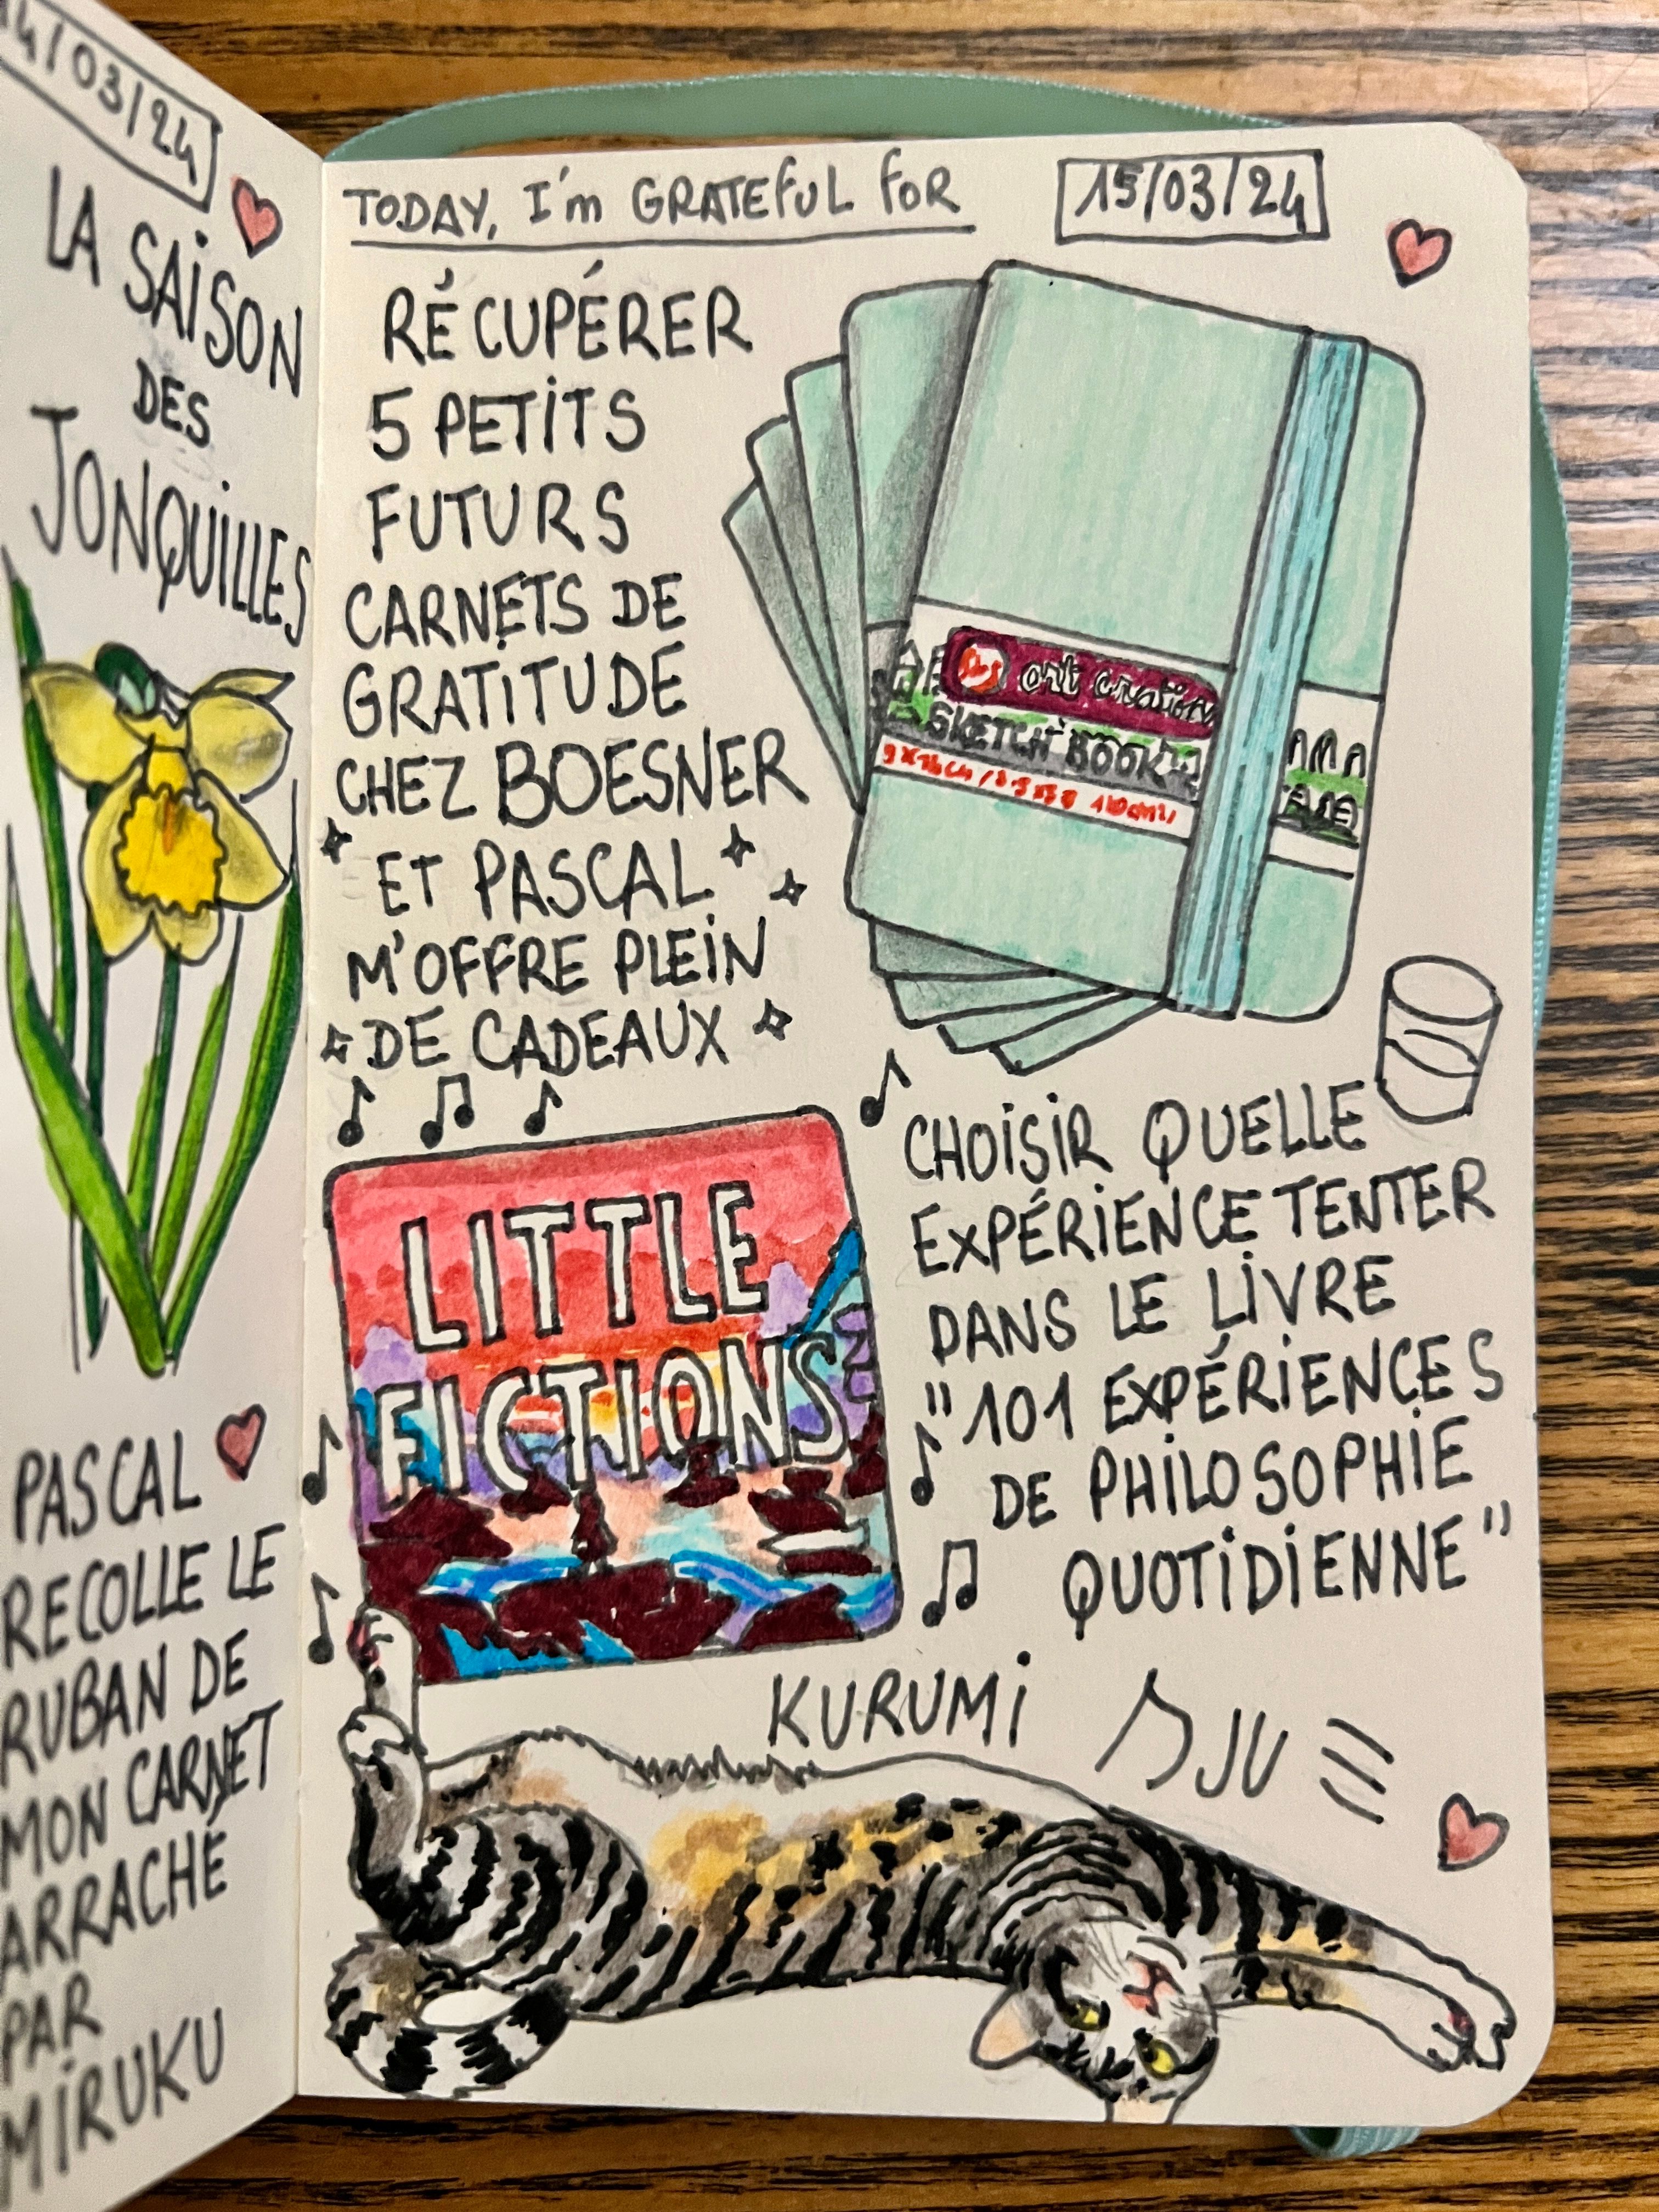 14/03/24
LA SAISON
DES
JONQUILLES
PASCAL
RECOLLE LE
RUBAN DE
MON CARNET
ARRACHÉ
PAR
MIRUKU
TODAY, I'm GRATEFUL FOR
15/03/24
RÉCUPÉRER
5 PETITS
FUTURS
CARNETS DE
GRATITUDE
CHEZ BOESNER
ET PASCAL
M'OFFRE PLEIN
DE CADEAUX
art creation
SKETCH BOOK
LITTLE
FICTIONS
CHOISIR QUELLE
EXPÉRIENCE TENTER
DANS LE LIVRE
"101 EXPÉRIENCES
DE PHILOSOPHIE
QUOTIDIENNE"
KURUMI